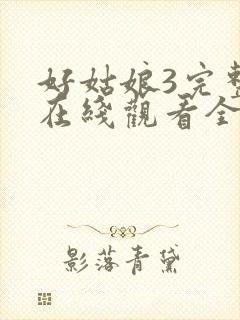 好姑娘3完整
在綫觀看全
影落青黛